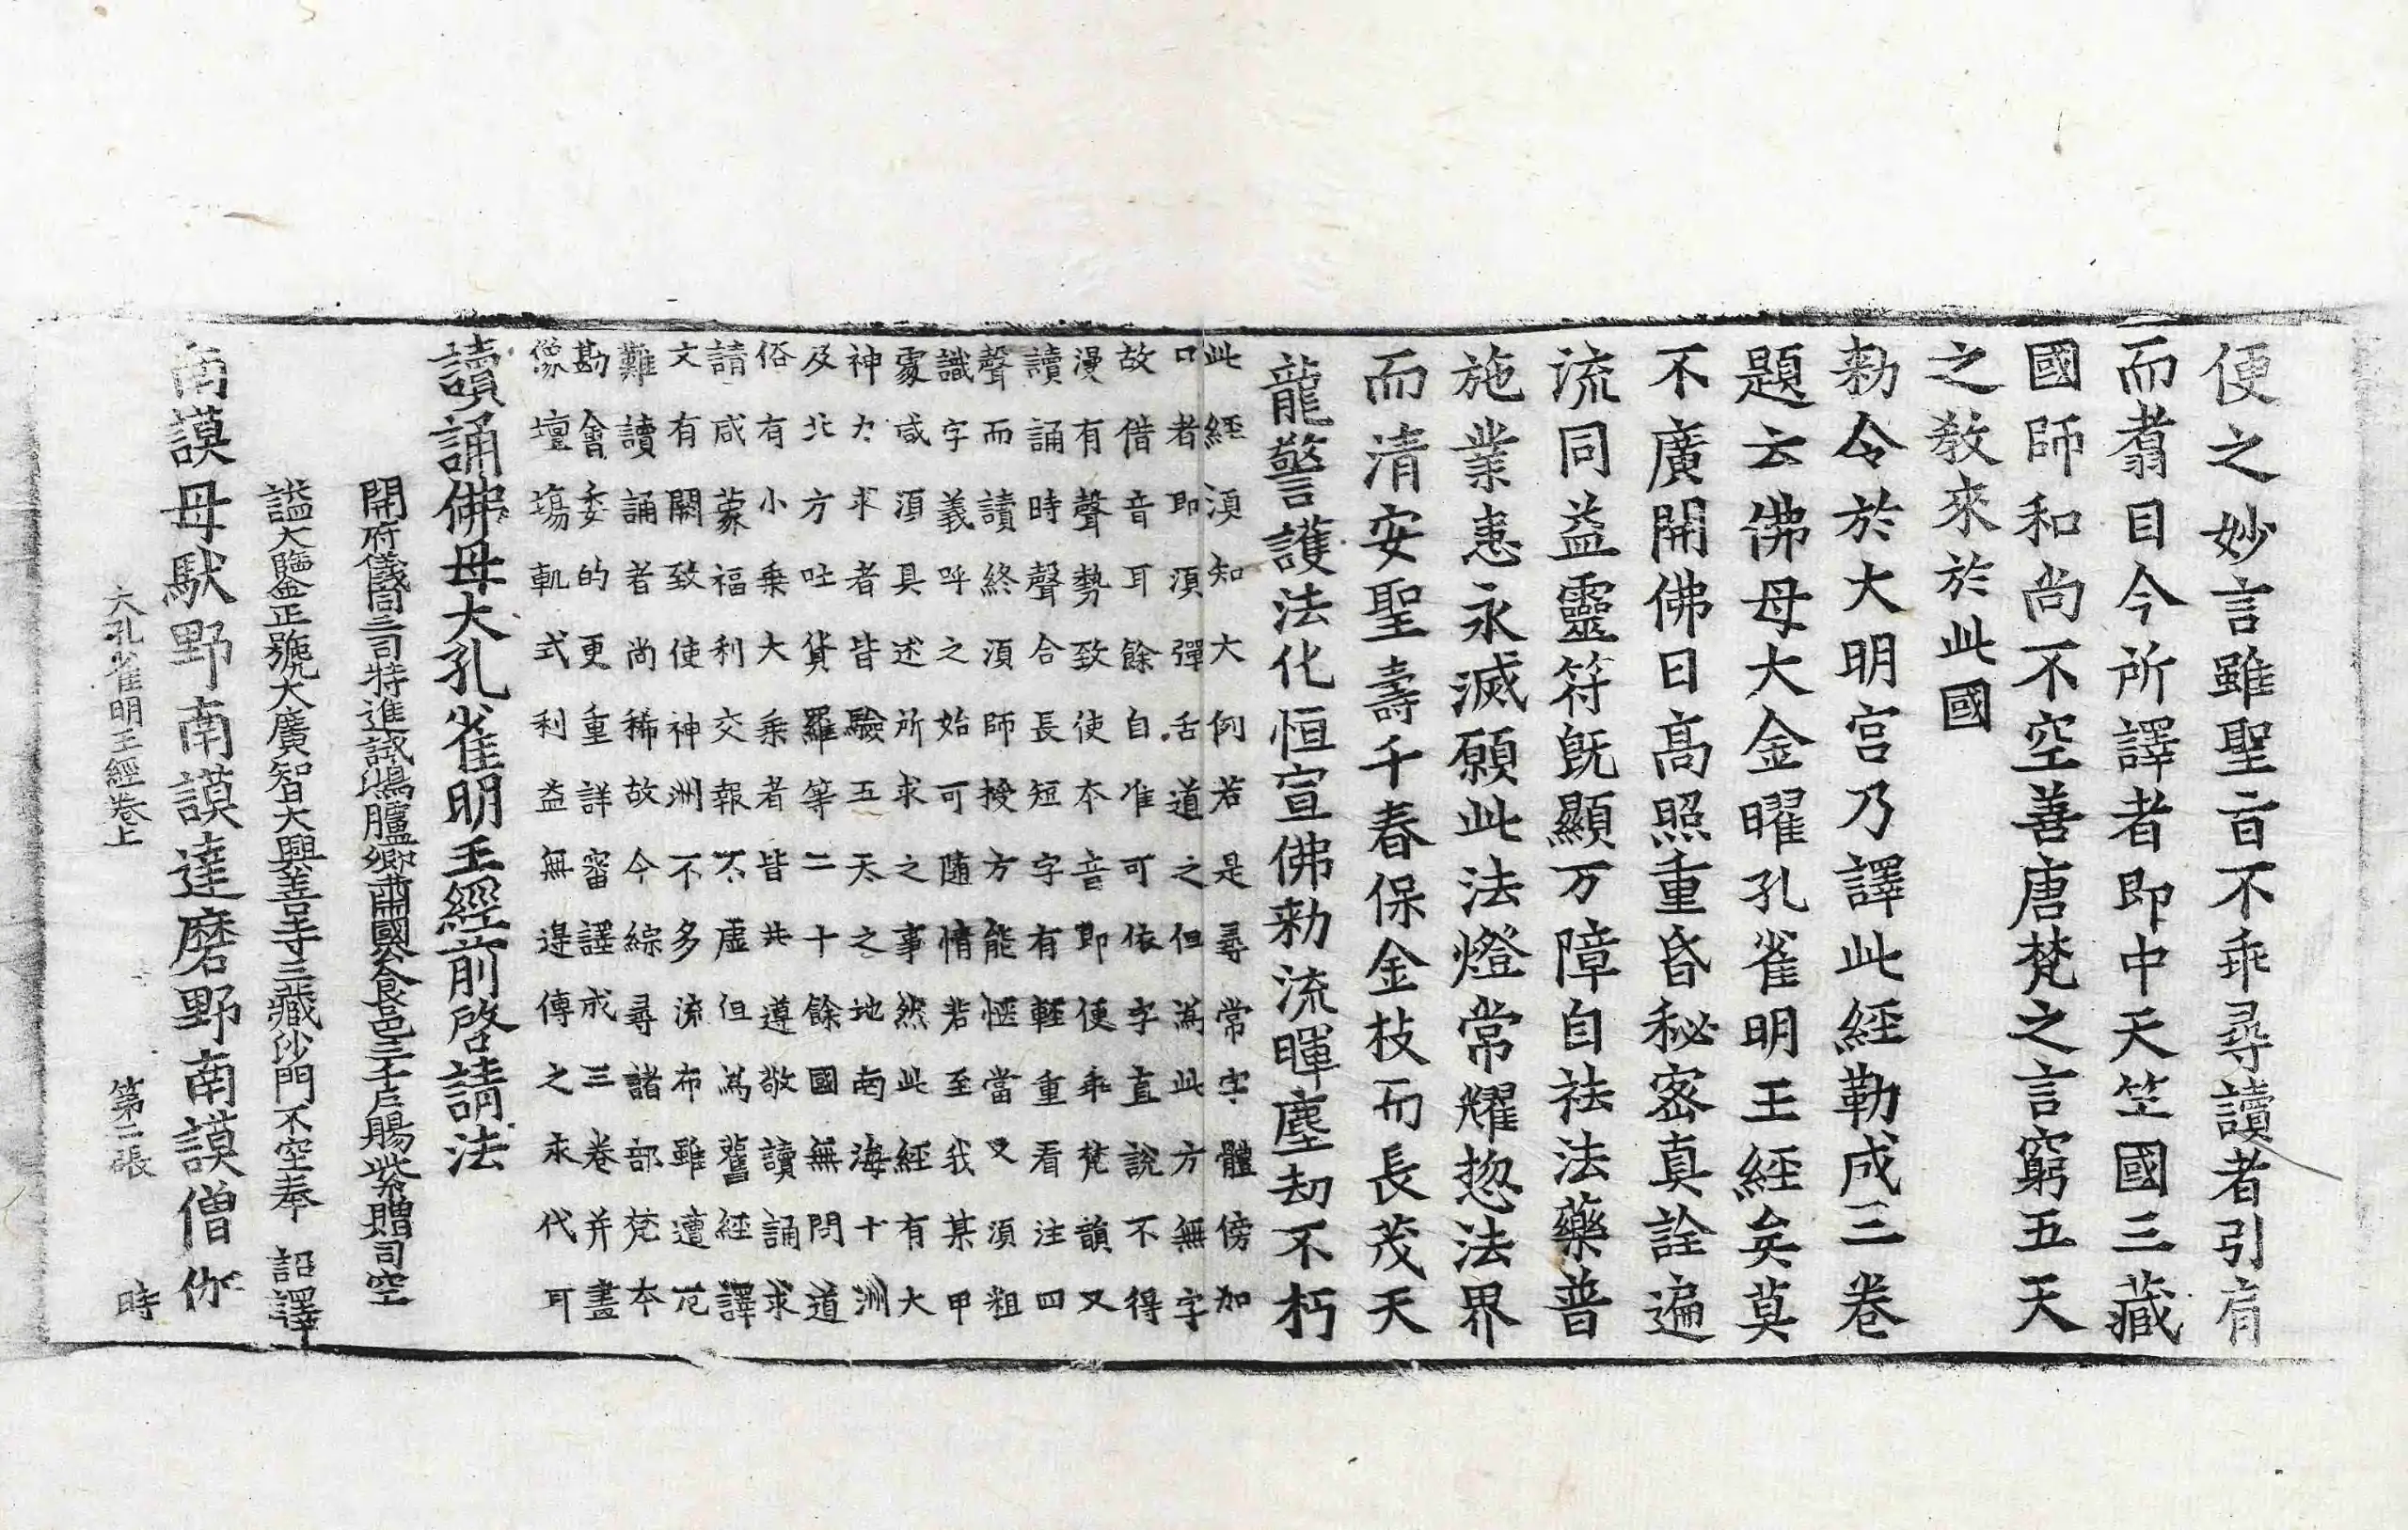 便之妙言雖聖旨不乖尋讀者引肓
而翥目今所譯者即中天笁國三藏
國師和尚不空善唐梵之言窮五天
之敎來於此國
勑令於大明宮乃譯此經勒成三卷
題云佛母大金曜孔雀明王經矣莫
不廣開佛日高照重昏秘密真詮遍
流同益靈符旣顯万障自祛法藥普
施業恚永滅願此法燈常耀揔法界
而清安聖壽千春保金枝而長茂天
龍警護法化恒宣佛勑流暉塵劫不朽
此經湏知大例若是尋常字體傍加
口者即湏彈舌道之但為此方無字
故借音耳餘自准可依字直說不得
漫有聲勢致使本音即便乖梵韻又
讀誦時聲合長短字有輕重看注四
聲而讀終湏師授方能愜當又湏粗
識字義呼之始可隨情若至我某甲
䖏咸湏具述所求之事然此經有大
神力求者皆驗五天之地南海十洲
及北方吐貨羅等二十餘國無問道
俗有小乗大乗者皆共遵敬讀誦求
請咸蒙福利交報不虛但為舊經譯
文有闕致使神洲不多流布雖遭厄
難讀誦者尚稀故今綜尋諸部梵本
勘會委的更重詳審譯成三卷并畫
像壇塲軌式利益無邊傳之永代耳
讀誦佛母大孔雀明王經前啓請法
開府儀同三司特進試鴻臚卿肅國公食邑三千戶賜紫贈司空
謚大鑒正號大廣智大興善寺三藏沙門不空奉 詔譯
南謨母馱野南謨達磨野南謨僧伽
大孔雀明王經卷上 第二張 時